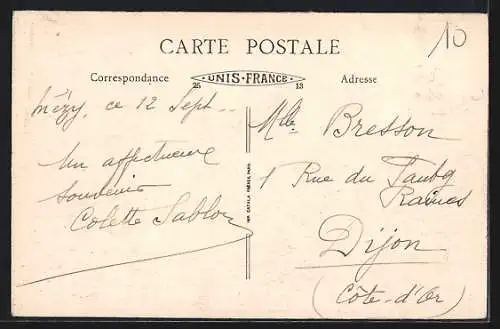 CARTE POSTALE
10
Correspondance
25 UNIS-FRANCE 13
Adresse
Mézy, ce 12 Sept..
Un affectueux
souvenir
Colette Sablon
IMP. CATALA FRÈRES, PARIS
Mlle Bresson
1 Rue du Faubg
Raines
Dijon
(Côte-d'Or)